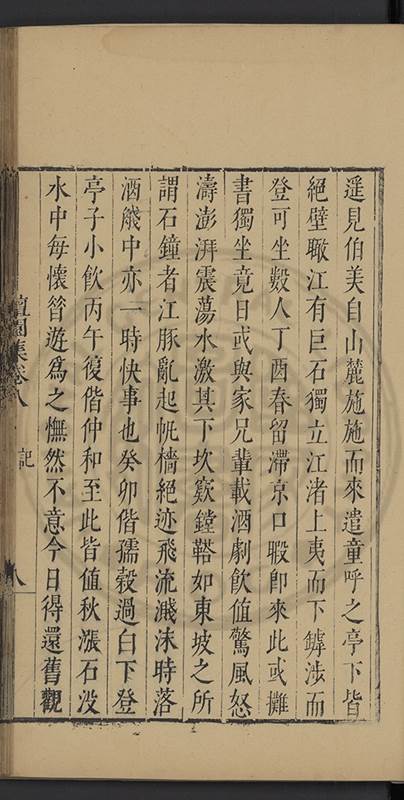 遥見伯美自山麓施施而來遣童呼之亭下皆
絕壁瞰江有巨石獨立江渚上夷而下罅涉而
登可坐數人丁酉春留滯京口暇卽來此或攤
書獨坐竟日或與家兄輩載酒劇飲值驚風怒
濤澎湃震蕩水激其下坎窽鏜鞳如東坡之所
謂石鐘者江豚亂起帆檣絕迹飛流濺沫時落
酒觴中亦一時快事也癸卯偕孺穀過白下登
亭子小飲丙午復偕仲和至此皆值秋漲石没
水中每懷昔遊爲之憮然不意今日得還舊觀
集卷八
記
八